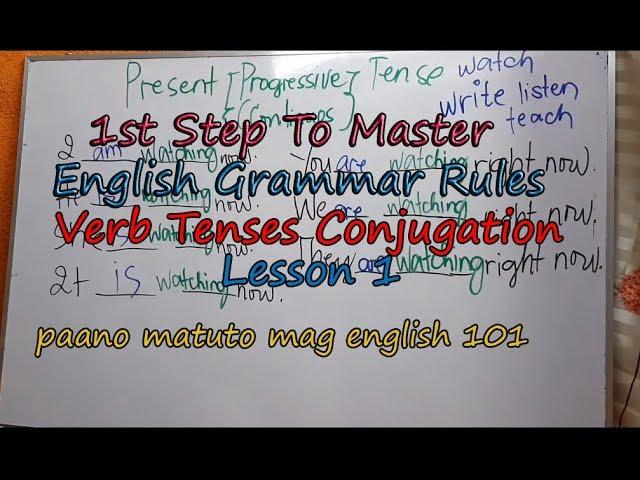 Present [Progressive] Tense
(Continous)
watch
write listen
teach
1st Step To Master
English Grammar Rules
Verb Tenses Conjugation
Lesson 1
paano matuto mag english 101
I am watching now.
You are watching right now.
watching now.
We are watching right now.
is watching now.
They are watching right now.
It is watching now.